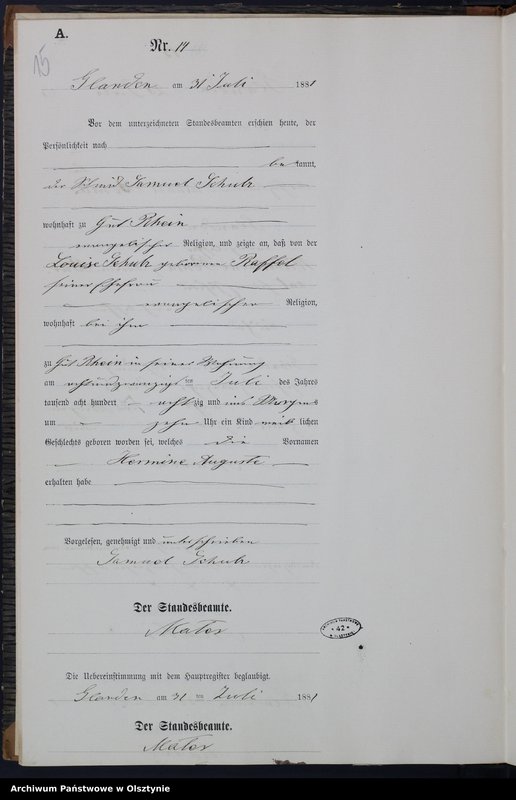 A.
15
Nr. 14
Glanden am 31 Juli 1881
Vor dem unterzeichneten Standesbeamten erschien heute, der
Persönlichkeit nach
bekannt,
der Schmid Samuel Schulz
wohnhaft zu Gut Rhein
evangelischer Religion, und zeigte an, daß von der
Louise Schulz geborenen Raffel
seiner Ehefrau
evangelischer Religion,
wohnhaft bei ihm
zu Gut Rhein in seiner Wohnung
am achtundzwanzigsten Juli des Jahres
tausend acht hundert achtzig und eins Morgens
um zehn Uhr ein Kind weiblichen
Geschlechts geboren worden sei, welches die Vornamen
Hermine Auguste
erhalten habe
Vorgelesen, genehmigt und unterschrieben
Samuel Schulz
Der Standesbeamte.
Mater
42
Die Uebereinstimmung mit dem Hauptregister beglaubigt.
Glanden am 31 ten Juli 1881
Der Standesbeamte.
Mater
Archiwum Państwowe w Olsztynie